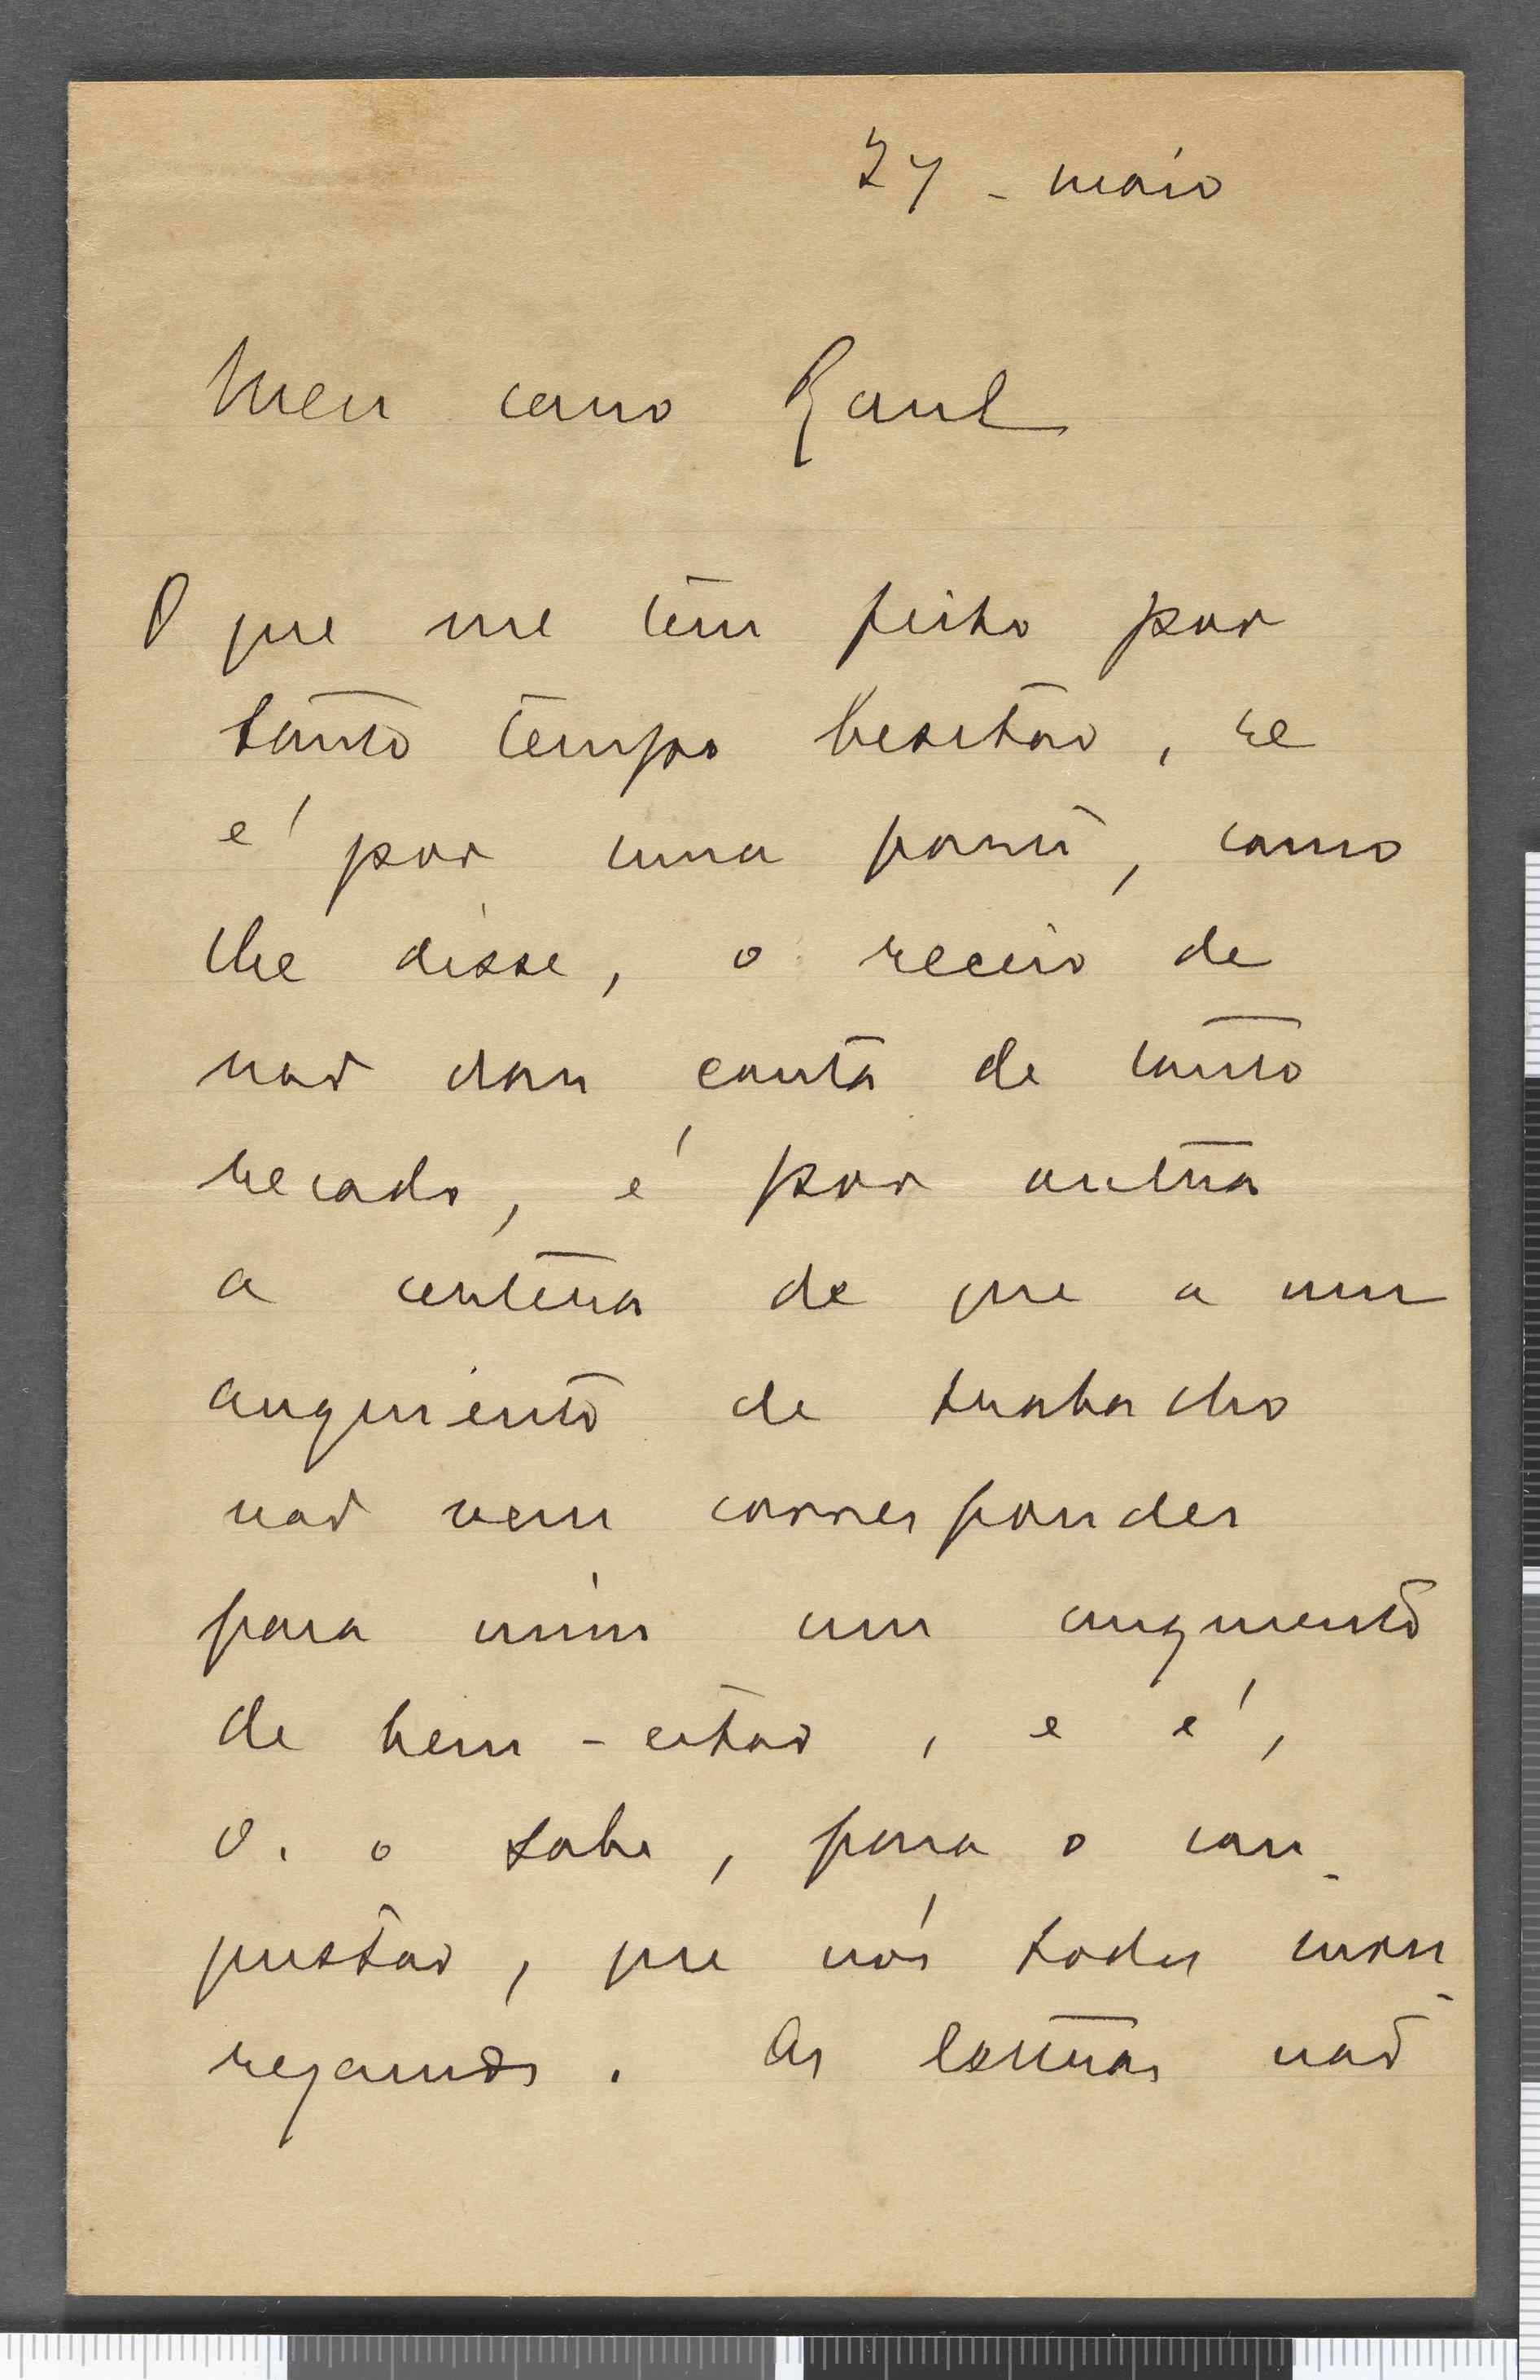 27 - maio
Meu caro Raul
O que me tem feito por
tanto tempo hesitar, se
é por uma parte, como
lhe disse, o receio de
não dar conta de tanto
recado, é por outra
a certeza de que a um
augmento de trabalho
não vem corresponder
para mim um augmento
de bem-estar, e é,
V. o sabe, para o con-
quistar, que nós todos mou-
rejamos. As lettras não